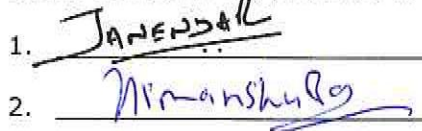 1. JANENDAR
2. Himanshu Rg